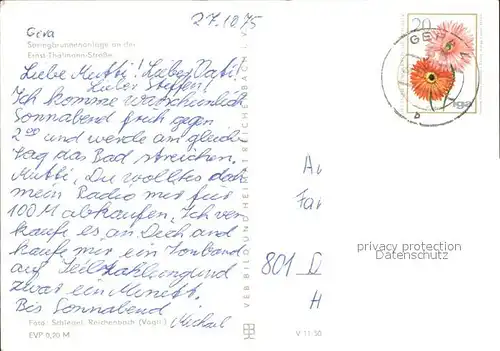 27.10.75
Gera
Springbrunnenanlage an der
Ernst-Thälmann-Straße
Liebe Mutti! Lieber Vati!
Lieber Steffen!
Ich komme warscheinlich
Sonnabend früh gegen
2⁰⁰ und werde am gleichen
Tag das Bad streichen.
Mutti, Du wolltes doch
mein Radio mir für
100 M abkaufen. Ich ver
kaufe es an Dich und
kaufe mir ein Tonband
auf Teilzahlung und
zwar ein Monett.
Bis Sonnabend!
Michael
Foto: Schlegel, Reichenbach (Vogtl.)
EVP 0,20 M
VEB BILD UND HEIMAT REICHENBACH I. V.
20
GERA
1
b
iga
Fa
801
H
privacy protection
Datenschutz
V 11 50